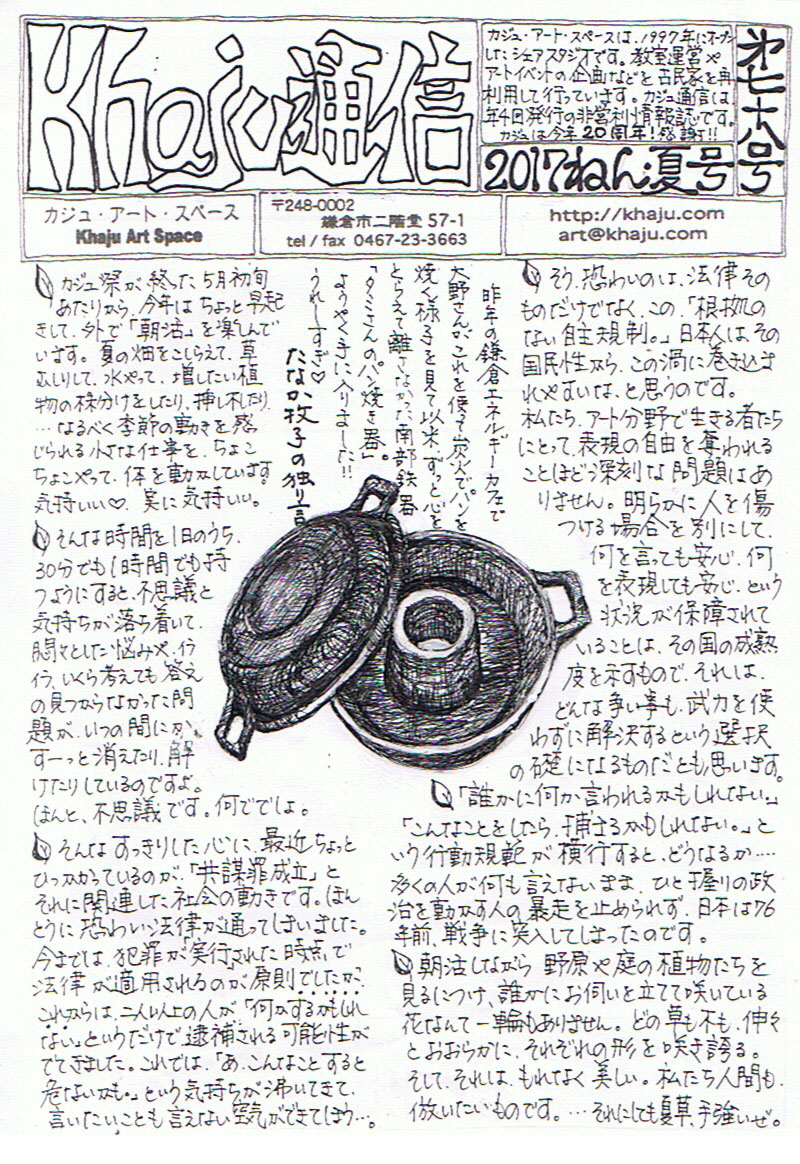 Khaju通信
カジュ・アート・スペースは、1997年にオープン
したシェアスタジオです。教室運営や
アートイベントの企画などを古民家を再
利用して行っています。カジュ通信は、
年4回発行の非営利情報誌です。
カジュは今年20周年!感謝!!
2017ねん夏号
第七十八号
カジュ・アート・スペース
Khaju Art Space
〒248-0002
鎌倉市二階堂 57-1
tel / fax 0467-23-3663
http://khaju.com
art@khaju.com
カジュ祭が終った5月初旬
あたりから、今年はちょっと早起
きして、外で「朝活」を楽しんで
います。夏の畑をこしらえて、草
むしりして、水やって、増したい植
物の株分けをしたり、挿し木したり
…なるべく季節の動きを感
じられる小さな仕事を、ちょこ
ちょこやって、体を動かしています。
気持いい♡、実に気持いい。
そんな時間を1日のうち、
30分でも1時間でも持
つようにすると、不思議と
気持ちが落ち着いて、
悶々とした悩みや、イラ
イラ、いくら考えても答え
の見つからなかった問
題が、いつの間にか、
すーっと消えたり、解
けたりしているのですよ。
ほんと、不思議です。何ででしょ。
そんなすっきりした心に、最近ちょっと
ひっかかっているのが、「共謀罪成立」と
それに関連した社会の動きです。ほん
とうに恐わい法律が通ってしまいました。
今までは、犯罪が「実行」された時点で
法律が適用されるのが原則でしたが、
これからは、二人以上の人が「何かするかもしれ
ない」というだけで逮捕される可能性が
でてきました。これでは、「あ、こんなことすると
危ないかも。」という気持ちが沸いてきて、
言いたいことも言えない空気ができてしまう…。
昨年の鎌倉エネルギーカフェで
大野さんがこれを使って炭火でパンを
焼く様子を見て以来、ずっと心を
とらえて離さなかった南部鉄器
「タミさんのパン焼き器」。
ようやく手に入りました!!
うれしすぎ♡
たなか牧子の独り言
そう、恐わいのは、法律その
ものだけでなく、この、「根拠の
ない自主規制。」日本人は、その
国民性から、この渦に巻き込ま
れやすいな、と思うのです。
私たち、アート分野で生きる者たち
にとって、表現の自由を奪われる
ことほど深刻な問題はあ
りません。明らかに人を傷
つける場合を別にして、
何を言っても安心、何
を表現しても安心、という
状況が保障されて
いることは、その国の成熟
度を示すもので、それは、
どんな争い事も、武力を使
わずに解決するという選択
の礎になるものだとも思います。
「誰かに何か言われるかもしれない。」
「こんなことをしたら、捕まるかもしれない。」と
いう行動規範が横行すると、どうなるか…
多くの人が何も言えないまま、ひと握りの政
治を動かす人の暴走を止められず、日本は76
年前、戦争に突入してしまったのです。
朝活しながら野原や庭の植物たちを
見るにつけ、誰かにお伺いを立てて咲いている
花なんて一輪もありません。どの草も木も、伸々
とおおらかに、それぞれの形を咲き誇る。
そして、それは、もれなく美しい。私たち人間も、
倣いたいものです。…それにしても夏草、手強いぜ。